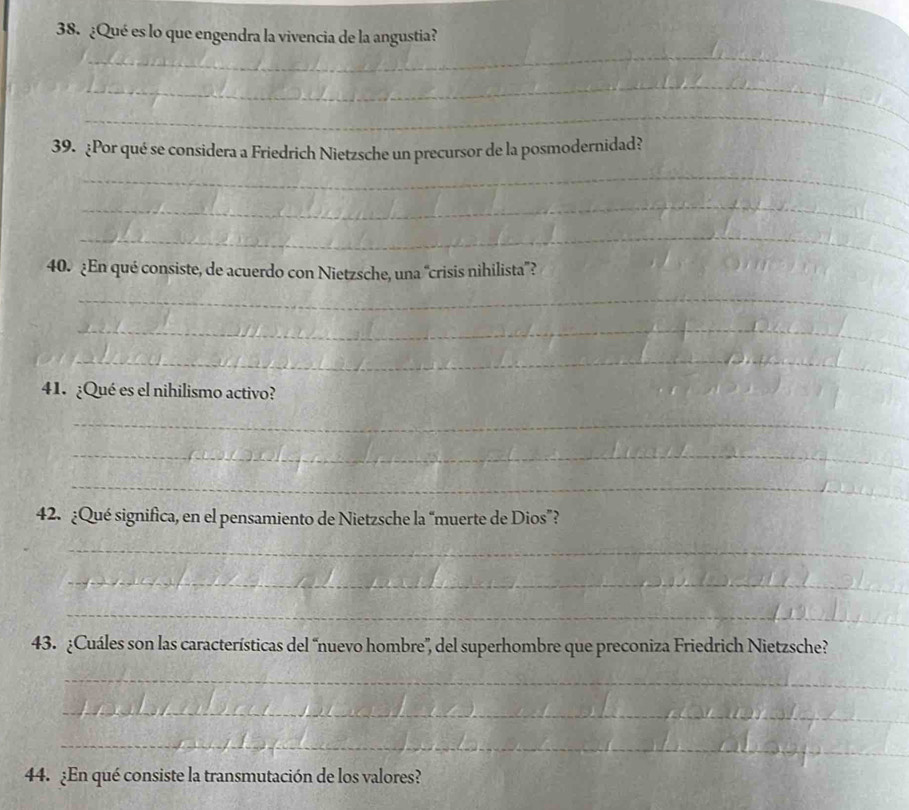 38. ¿Qué es lo que engendra la vivencia de la angustia?
39. ¿Por qué se considera a Friedrich Nietzsche un precursor de la posmodernidad?
40. ¿En qué consiste, de acuerdo con Nietzsche, una “crisis nihilista”?
41. ¿Qué es el nihilismo activo?
42. ¿Qué significa, en el pensamiento de Nietzsche la “muerte de Dios”?
43. ¿Cuáles son las características del “nuevo hombre”, del superhombre que preconiza Friedrich Nietzsche?
44. ¿En qué consiste la transmutación de los valores?